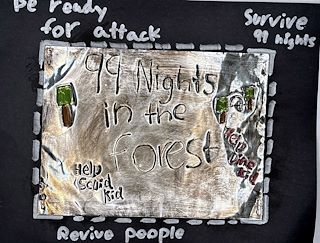 Be ready
for attack
Survive
99 nights
99 Nights
in the
forest
Help
Squid
Kid
Help
Dino
Kid
Revive people